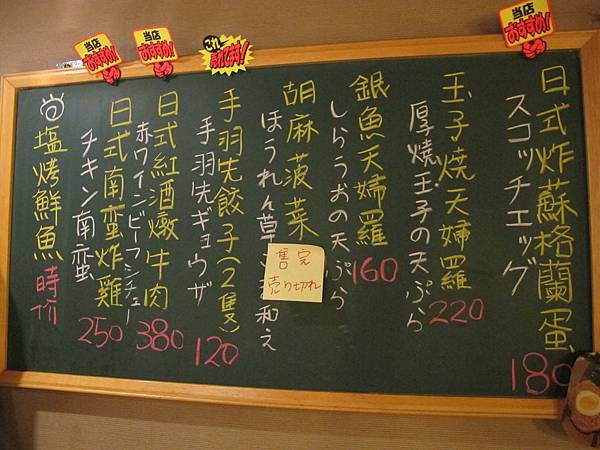 当店
おすすめ!
日式炸蘇格蘭蛋
スコッチエッグ
180
玉子燒天婦羅
厚燒玉子の天ぷら
220
銀魚天婦羅
しらうおの天ぷら
160
胡麻菠菜
ほうれん草
和え
售完
売り切れ
これ
売れてます!
手羽先餃子(2隻)
手羽先ギョウザ
120
当店
おすすめ!
日式紅酒燉牛肉
赤ワインビーフシチュー
380
当店
おすすめ!
日式南蛮炸雞
チキン南蛮
250
塩烤鮮魚
時价